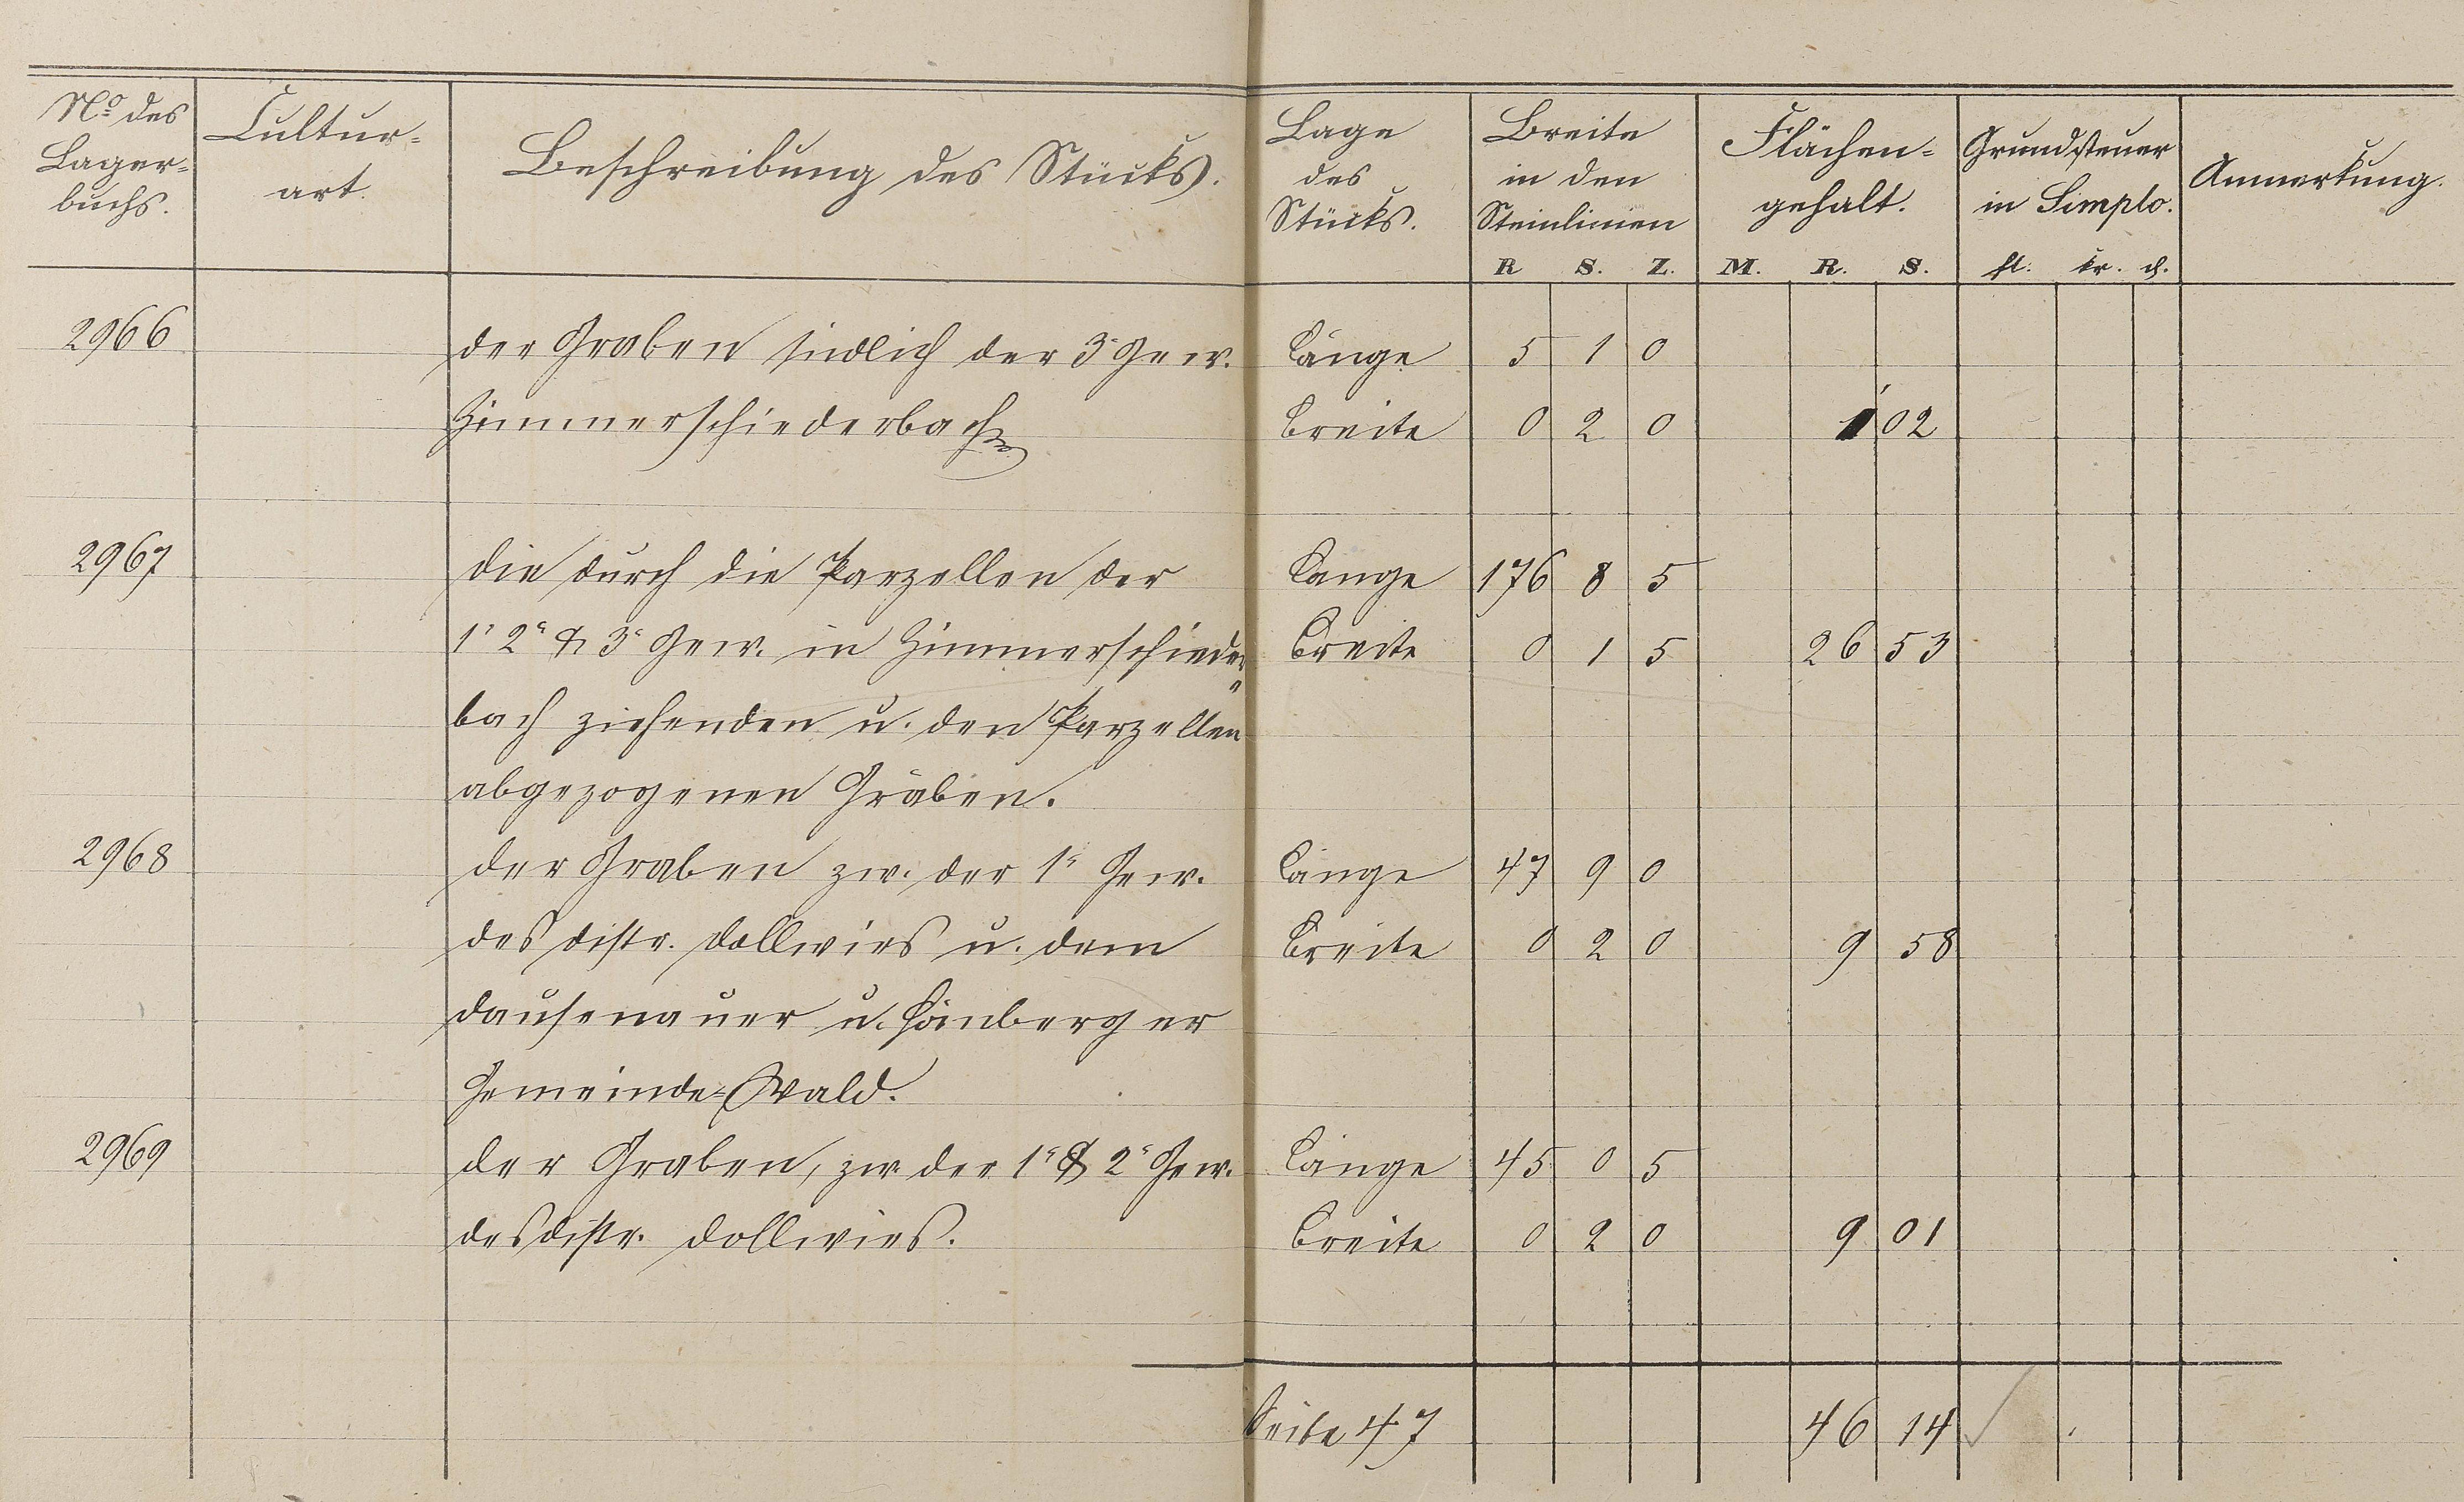 No des Lager- buchs.
Cultur- art.
Beschreibung des Stücks.
Lage des Stücks.
Breite in den Steinlinien
R S. Z.
Flächen- gehalt.
M. R. S.
Grundsteuer in Simplo.
fl. kr. d.
Anmerkung.
2966 der Graben südlich der 3r Gew. Länge 5 1 0
Zimmerschiederbach Breite 0 2 0 1 02
2967 die durch die Parzellen der Länge 176 8 5
1r 2r & 3r Gew. in Zimmerschieder= Breite 0 1 5 26 53
bach ziehenden u. den Parzellen
abgezogenen Gräben.
2968 der Graben zw. der 1r Gew. Länge 47 9 0
des Distr. Dollwies u. dem Breite 0 2 0 9 58
Dausenauer u. Hömberger
Gemeinde-Wald.
2969 der Graben, zw der 1r & 2r Gew. Länge 45 0 5
des Distr. Dollwies. Breite 0 2 0 9 01
Seite 47 46 14